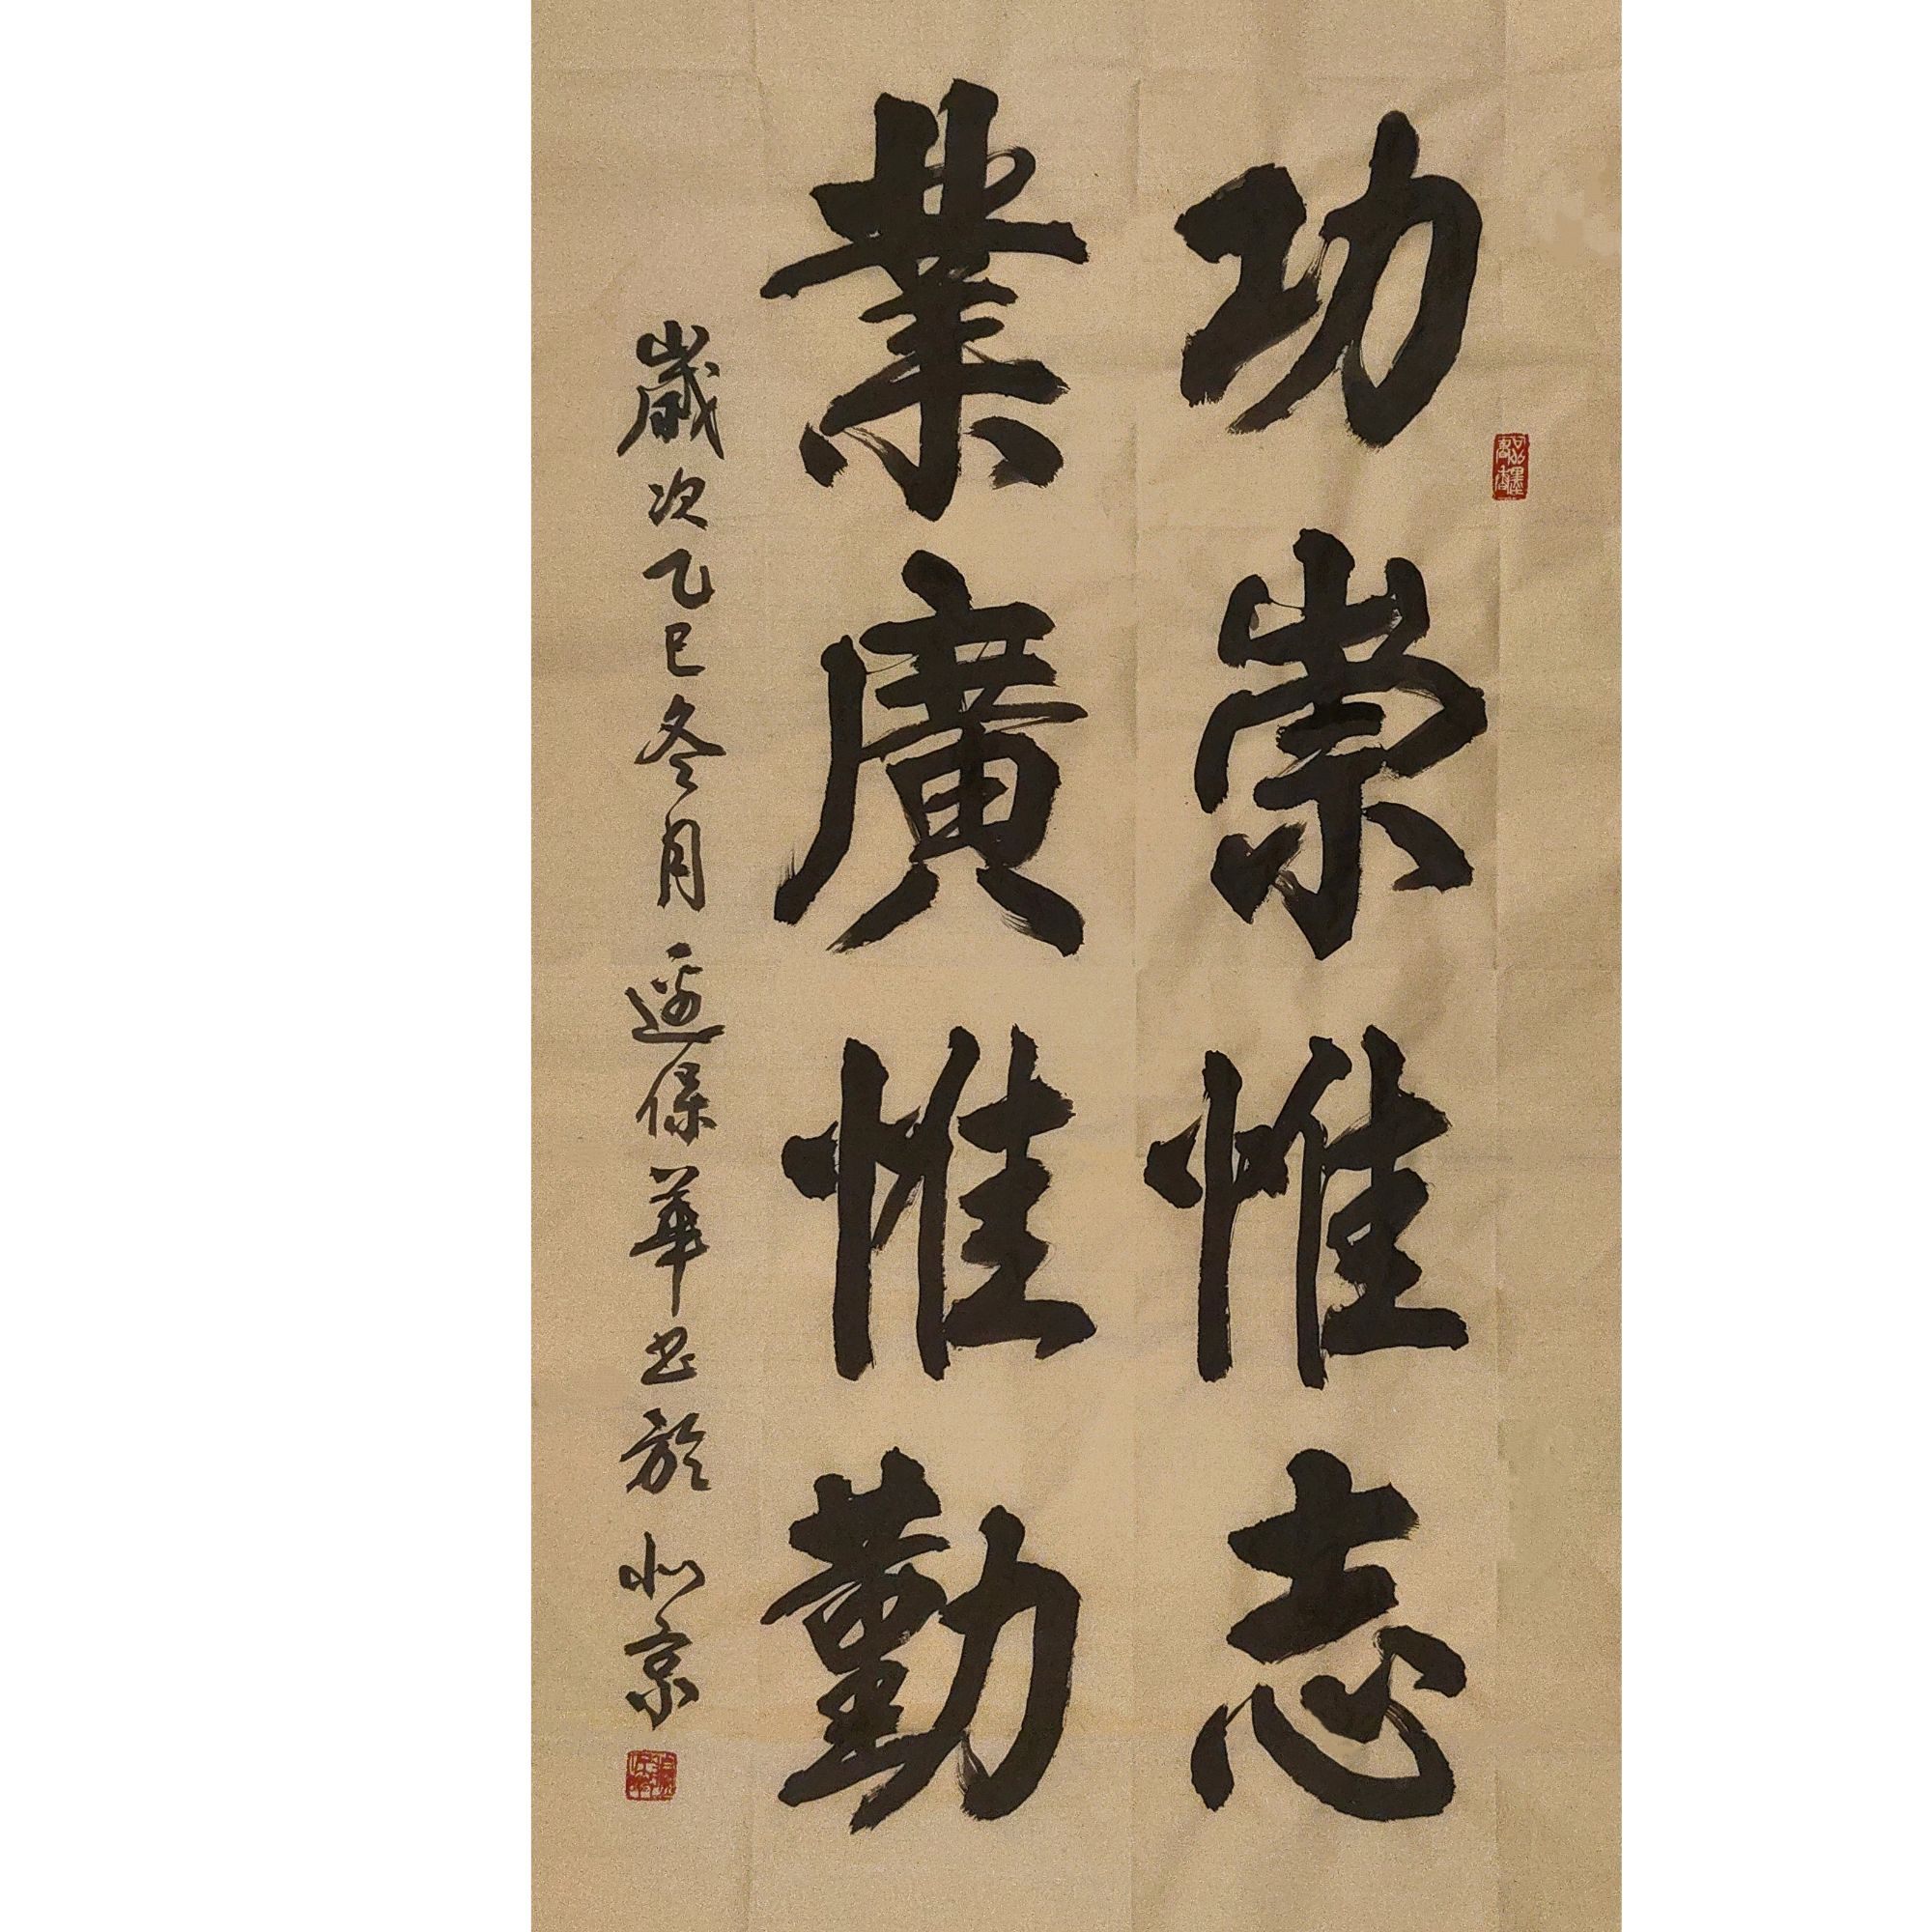 功崇惟志
業廣惟勤
歲次乙巳冬月邊保華书於北京